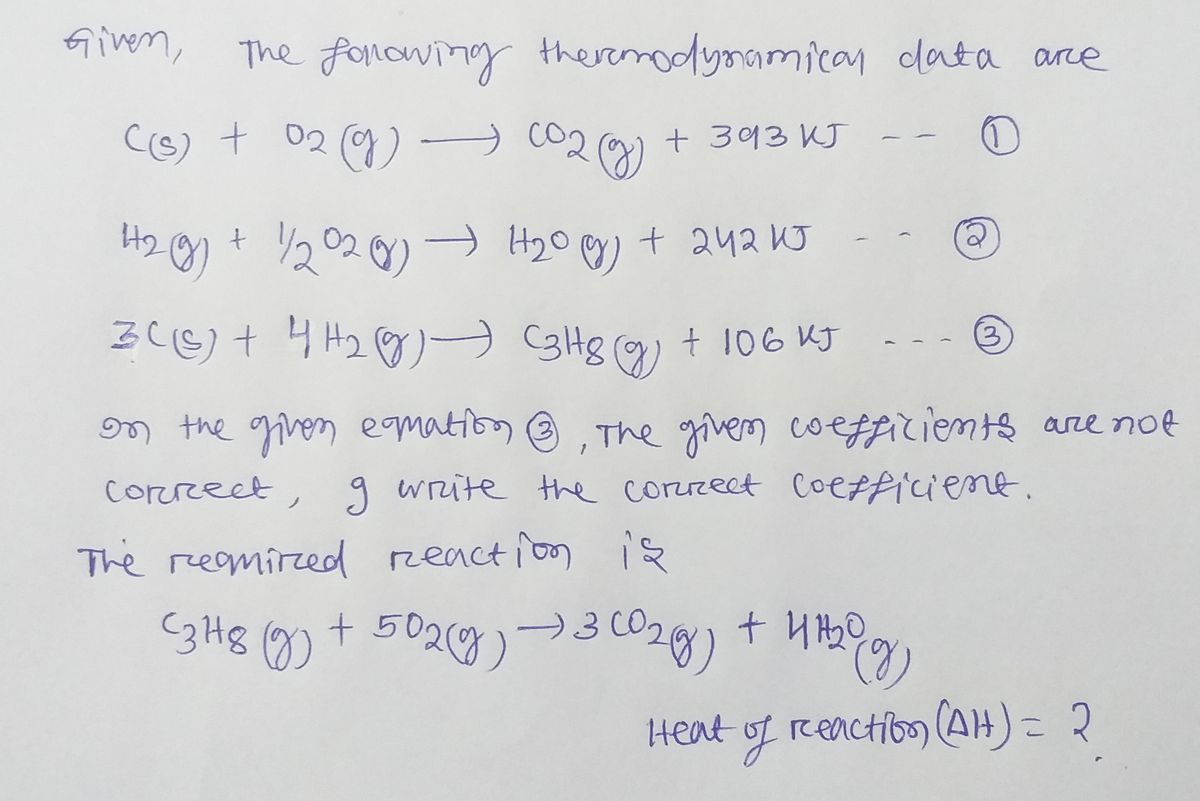 Given, The following thermodynamical data are
C(s) + O2 (g) → CO2 (g) + 393 KJ -- ①
H2 (g) + 1/2 O2 (g) → H2O (g) + 242 KJ -- ②
3C(s) + 4 H2 (g) → C3H8 (g) + 106 KJ --- ③
on the given equation ③, The given coefficients are not
correct, I write the correct coefficient.
The required reaction is
C3H8 (g) + 5O2(g) → 3 CO2(g) + 4H2O(g)
Heat of reaction (ΔH) = ?